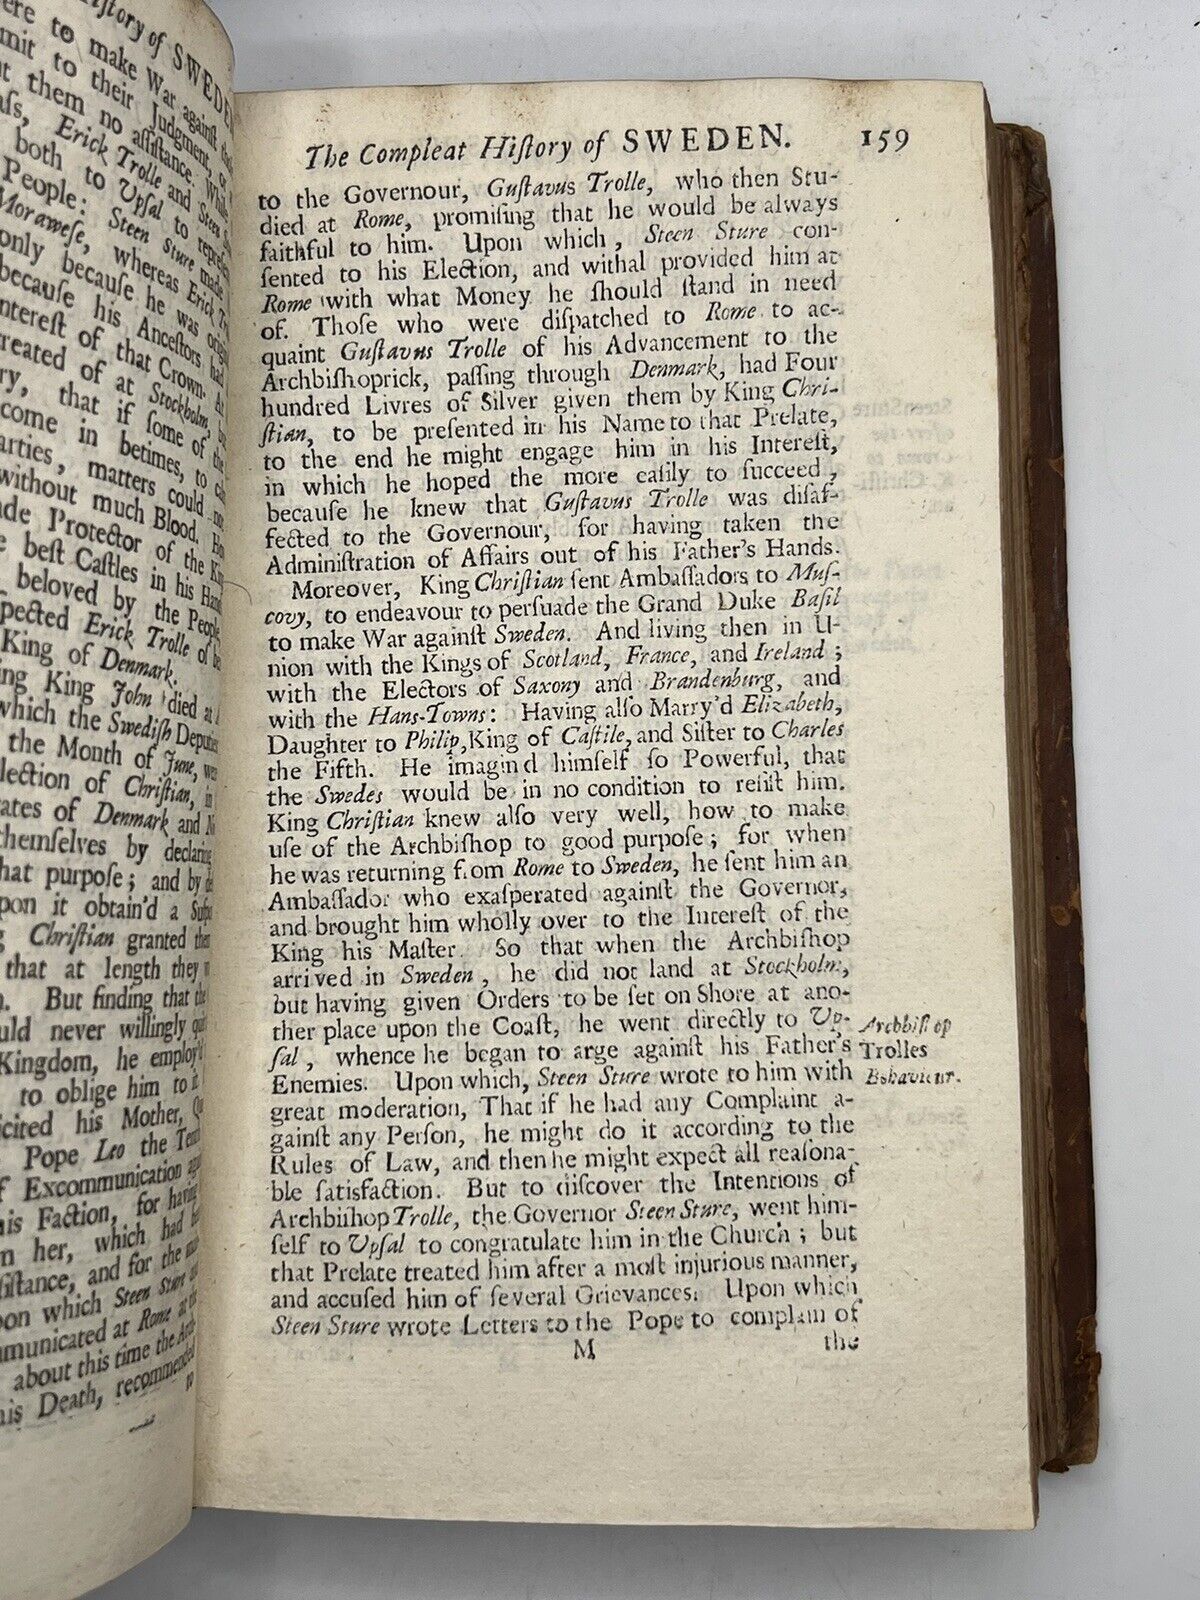 History of SWEDEN
ere to make War against
mit to their Judgment, or
t them no assistance. While
Erick Trolle and Steen
both to Upsal to
People: Steen Sture made
Morawese, whereas Erick
only because he was
because his Ancestors had
nterest of that Crown. At
reated of at Stockholm,
ry, that if some of the
come in betimes, to
arties, matters could not
without much Blood.
ade Protector of the
e best Castles in his
beloved by the People
pected Erick Trolle of
King of Denmark.
ing King John died at
which the Swedish
the Month of June,
lection of Christian, in
ates of Denmark and
themselves by declaring
hat purpose; and by
pon it obtain'd a
Christian granted
that at length they
But finding that
uld never willingly
Kingdom, he employ'd
to oblige him to it
icited his Mother,
Pope Leo the
f Excommunication
his Faction, for having
m her, which had
sistance, and for the
pon which Steen Sture
mmunicated at Rome at
about this time the
his Death, recommended
to
The Compleat Hiſtory of SWEDEN. 159
to the Governour, Guſtavus Trolle, who then Stu-
died at Rome, promiſing that he would be always
faithful to him. Upon which, Steen Sture con-
ſented to his Election, and withal provided him at
Rome with what Money he ſhould ſtand in need
of. Thoſe who were diſpatched to Rome to ac-
quaint Guſtavus Trolle of his Advancement to the
Archbiſhoprick, paſſing through Denmark, had Four
hundred Livres of Silver given them by King Chri-
ſtian, to be preſented in his Name to that Prelate,
to the end he might engage him in his Intereſt,
in which he hoped the more eaſily to ſucceed,
becauſe he knew that Guſtavus Trolle was diſaf-
fected to the Governour, for having taken the
Adminiſtration of Affairs out of his Father's Hands.
Moreover, King Chriſtian ſent Ambaſſadors to Muſ-
covy, to endeavour to perſuade the Grand Duke Baſil
to make War againſt Sweden. And living then in U-
nion with the Kings of Scotland, France, and Ireland;
with the Electors of Saxony and Brandenburg, and
with the Hans-Towns: Having alſo Marry'd Elizabeth,
Daughter to Philip, King of Caſtile, and Siſter to Charles
the Fifth. He imagin d himſelf ſo Powerful, that
the Swedes would be in no condition to reſiſt him.
King Chriſtian knew alſo very well, how to make
uſe of the Archbiſhop to good purpoſe; for when
he was returning from Rome to Sweden, he ſent him an
Ambaſſador who exaſperated againſt the Governor,
and brought him wholly over to the Intereſt of the
King his Maſter. So that when the Archbiſhop
arrived in Sweden, he did not land at Stockholm,
but having given Orders to be ſet on Shore at ano-
ther place upon the Coaſt, he went directly to Up-
ſal, whence he began to arge againſt his Father's
Enemies. Upon which, Steen Sture wrote to him with
great moderation, That if he had any Complaint a-
gainſt any Perſon, he might do it according to the
Rules of Law, and then he might expect all reaſona-
ble ſatisfaction. But to diſcover the Intentions of
Archbiſhop Trolle, the Governor Steen Sture, went him-
ſelf to Upſal to congratulate him in the Church; but
that Prelate treated him after a moſt injurious manner,
and accuſed him of ſeveral Grievances. Upon which
Steen Sture wrote Letters to the Pope to complain of
M the
Archbiſhop
Trolles
Behaviour.